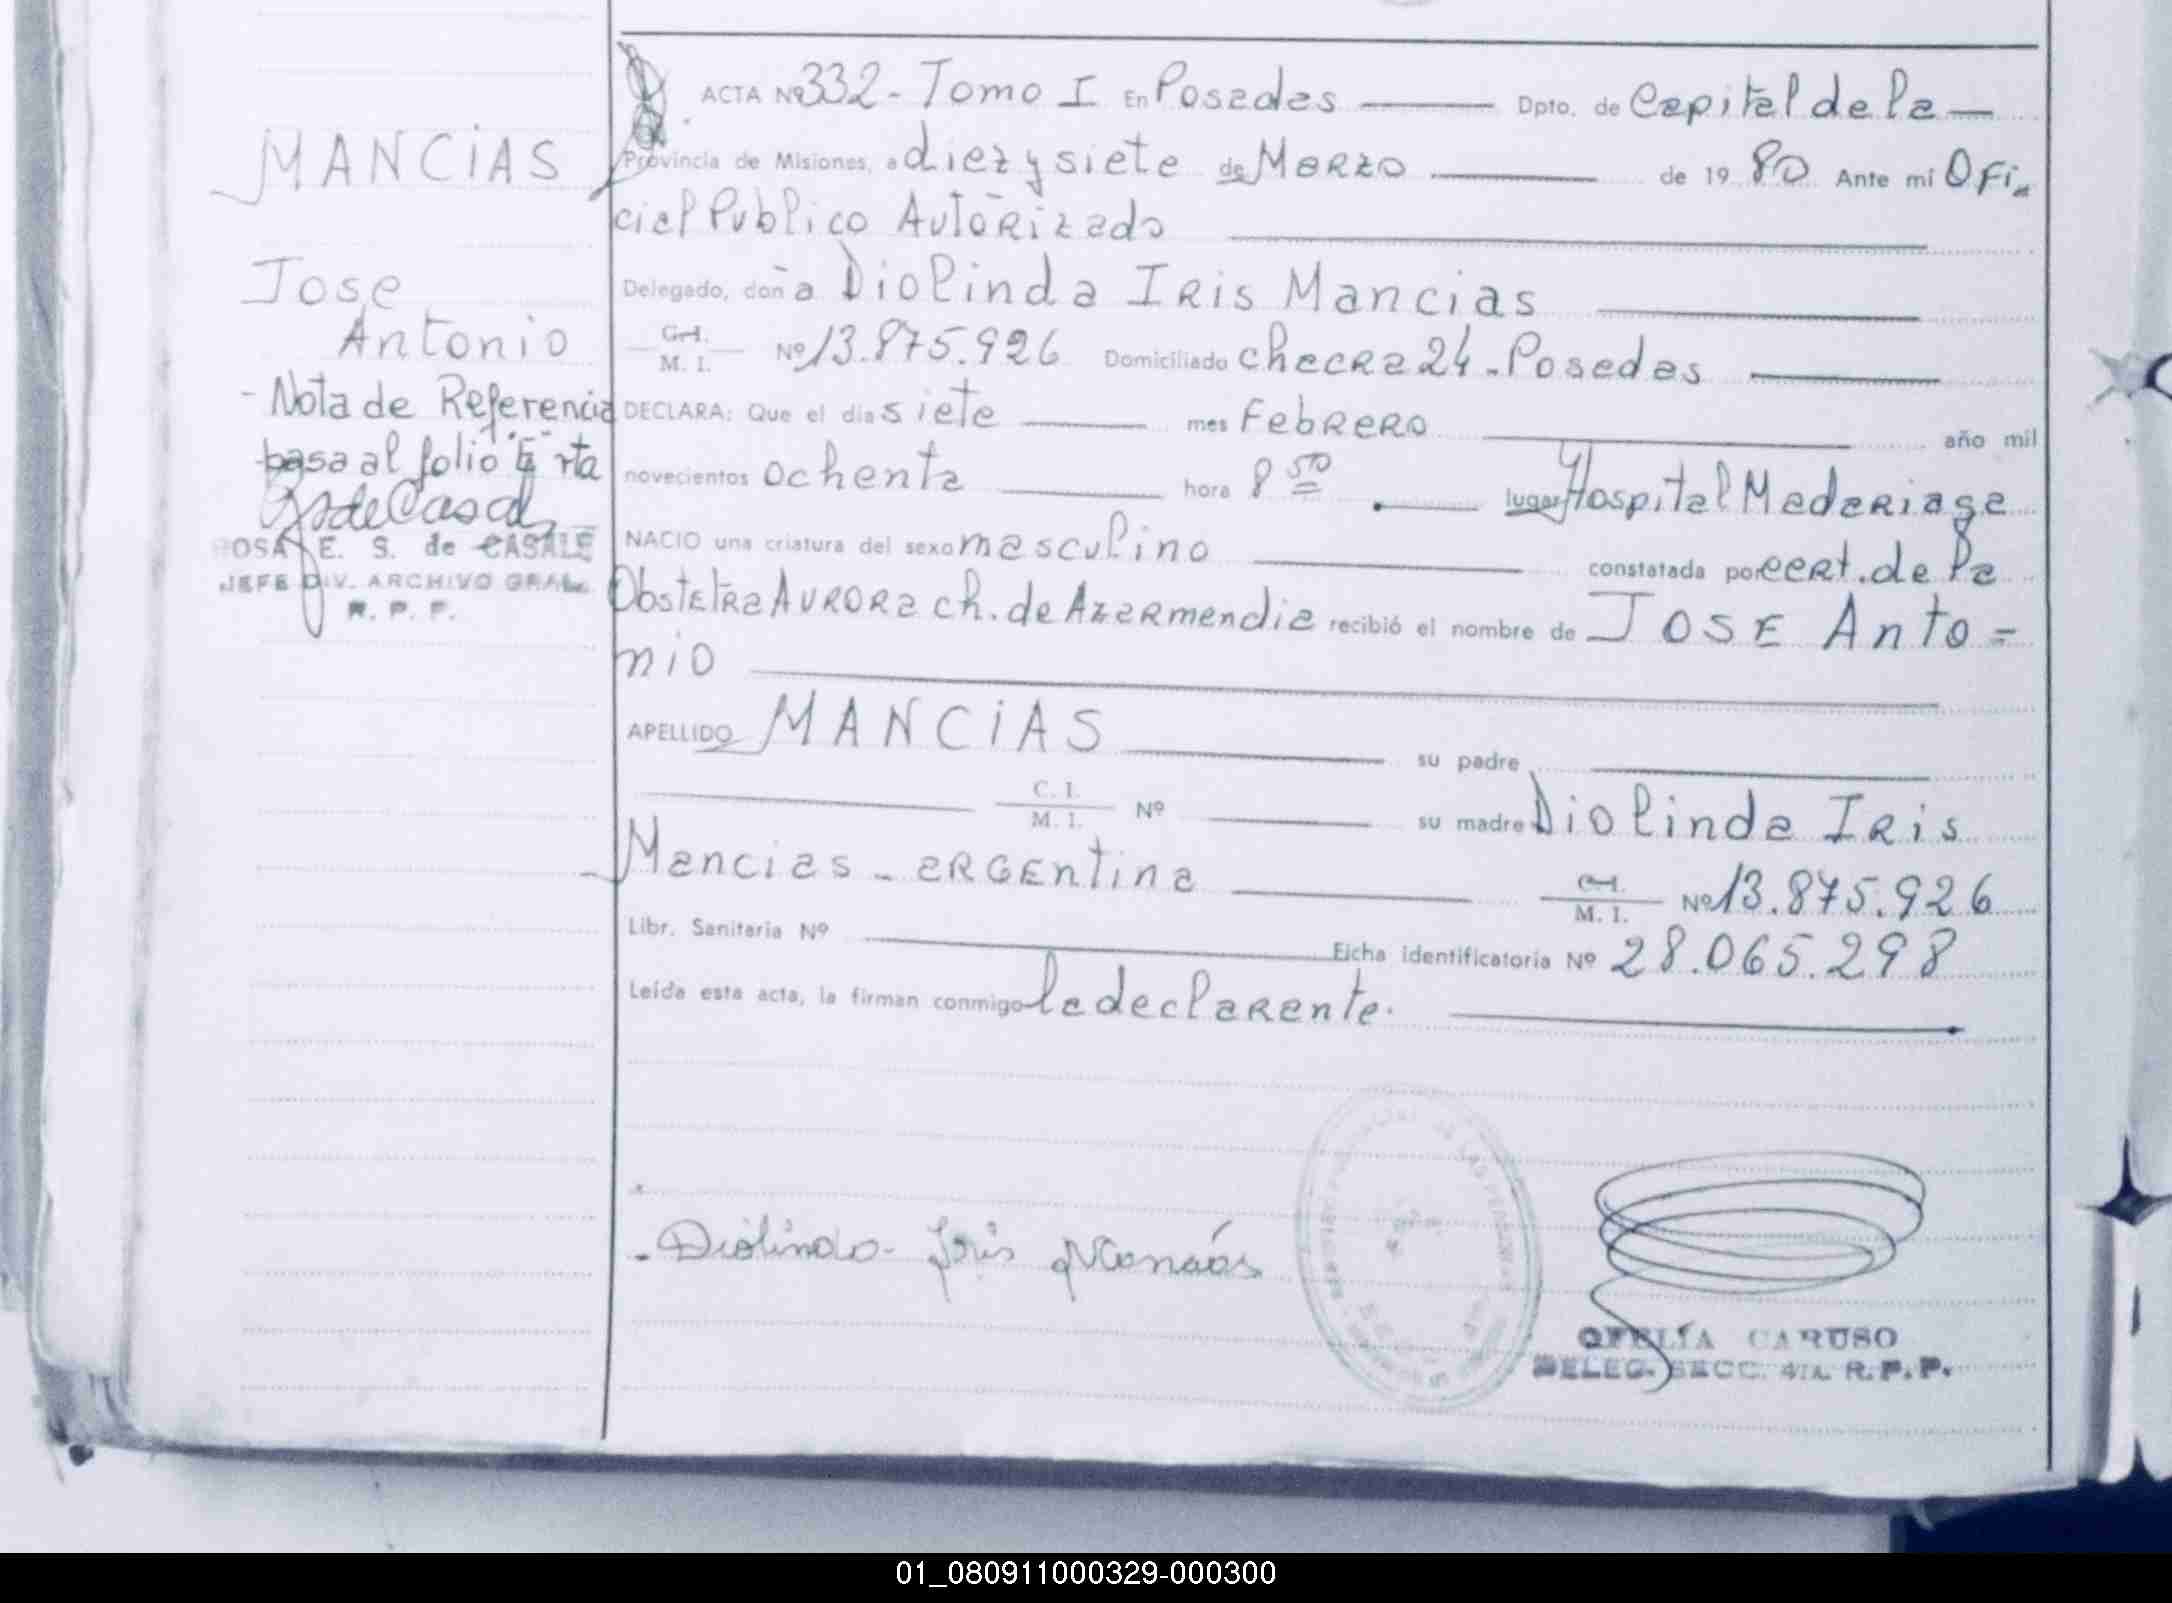 MANCiAS
Jose
Antonio
- Nota de Referencia
basa al folio "E" rta
ROSA E. S. de CASALE
JEFE DIV. ARCHIVO GRAL.
R. P. P.
ACTA Nº 332 - Tomo I En Posadas Dpto. de Capital de la
Provincia de Misiones, a diez y siete de Marzo de 19 80 Ante mi Ofi-
cial Publico Autorizado
Delegado, don a Diolinda Iris Mancias
C. I. / M. I. Nº 13.875.926 Domiciliado checra 24 - Posadas
DECLARA: Que el día siete mes Febrero año mil
novecientos ochenta hora 8 50 lugar Hospital Madariaga
NACIO una criatura del sexo masculino constatada por cert. de la
Obstetra Aurora ch. de Azarmendia recibió el nombre de JOSE Anto=
nio
APELLIDO MANCiAS su padre
C. I. / M. I. Nº su madre Diolinda Iris
Mancias - argentina C. I. / M. I. Nº 13.875.926
Libr. Sanitaria Nº Ficha identificatoria Nº 28.065.298
Leída esta acta, la firman conmigo la declarante.
Diolinda Iris Mancias
OFELIA CARUSO
DELEG. SECC. 4TA. R. P. P.
01_080911000329-000300